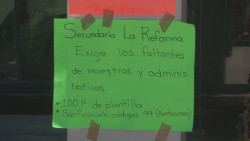 Secundaria La Reforma
Exige los faltantes
de maestros y adminis-
trativos.
• 100% de plantilla
• Basificación códigos